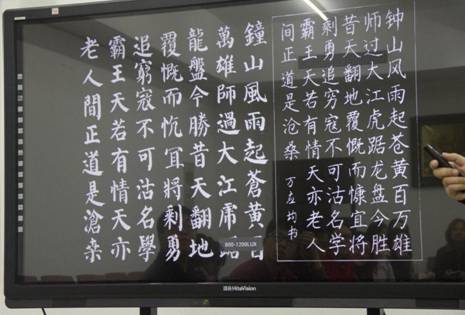 钟山风雨起苍黄百万雄
师过大江虎踞龙盘今胜
昔天翻地覆慨而慷宜将
剩勇追穷寇不可沽名学
霸王天若有情天亦老人
间正道是沧桑 万应均书
鐘山風雨起蒼黃百
萬雄師過大江虎踞
龍盤今勝昔天翻地
覆慨而忼冝將剩勇
追窮寇不可沽名學
霸王天若有情天亦
老人間正道是滄桒
800-1200LUX
鸿合HiteVision